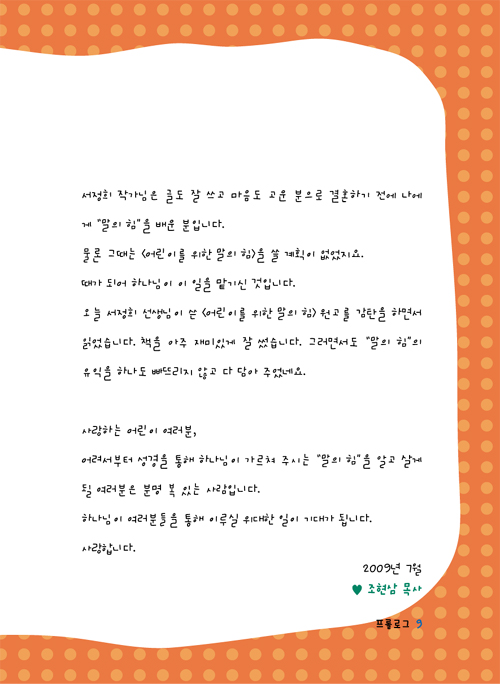 서정희 작가님은 글도 잘 쓰고 마음도 고운 분으로 결혼하기 전에 나에
게 "말의 힘"을 배운 분입니다.
물론 그때는 <어린이를 위한 말의 힘>을 쓸 계획이 없었지요.
때가 되어 하나님이 이 일을 맡기신 것입니다.
오늘 서정희 선생님이 쓴 <어린이를 위한 말의 힘> 원고를 감탄을 하면서
읽었습니다. 책을 아주 재미있게 잘 썼습니다. 그러면서도 "말의 힘"의
유익을 하나도 빠뜨리지 않고 다 담아 주었네요.
사랑하는 어린이 여러분,
어려서부터 성경을 통해 하나님이 가르쳐 주시는 "말의 힘"을 알고 살게
될 여러분은 분명 복 있는 사람입니다.
하나님이 여러분들을 통해 이루실 위대한 일이 기대가 됩니다.
사랑합니다.
2009년 7월
♥ 조현삼 목사
프롤로그 9